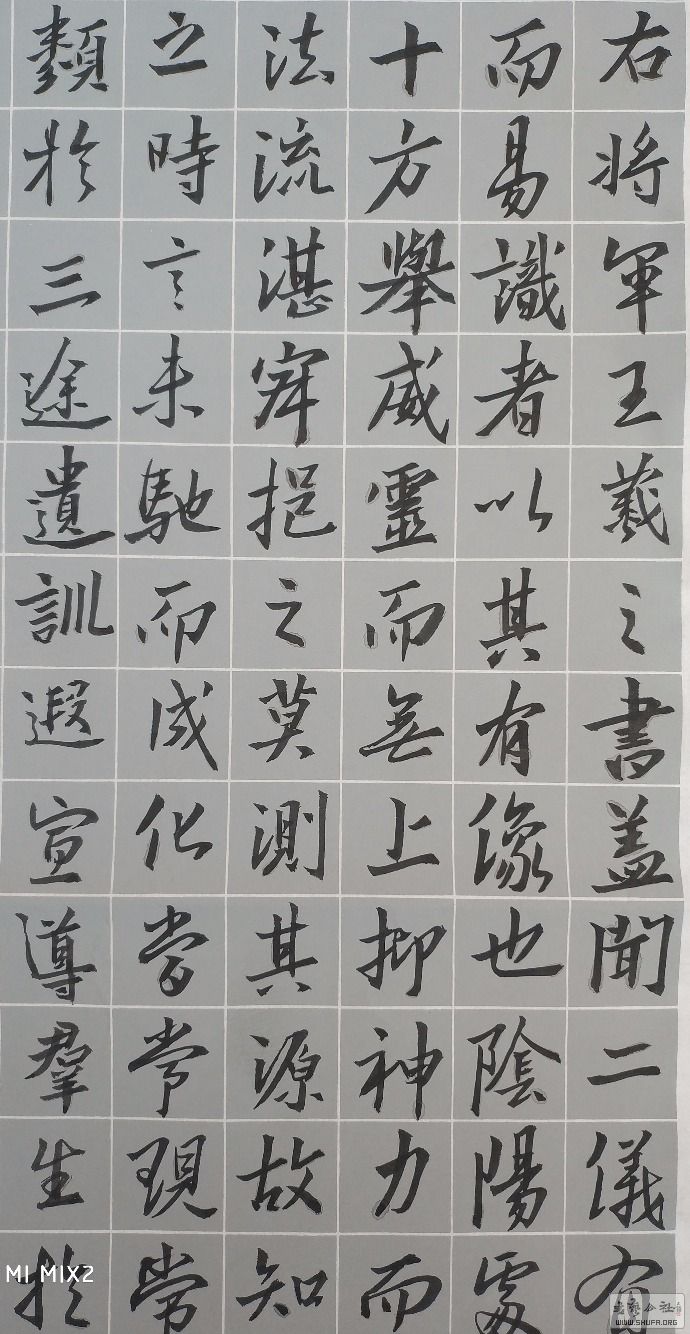 右将軍王羲之書盖聞二儀有
而易識者以其有像也陰陽處
十方舉威靈而無上抑神力而
法流湛寂挹之莫測其源故知
之時言未馳而成化當常現常
類於三途遺訓遐宣導羣生於
MI MIX2
WWW.SHUFA.ORG